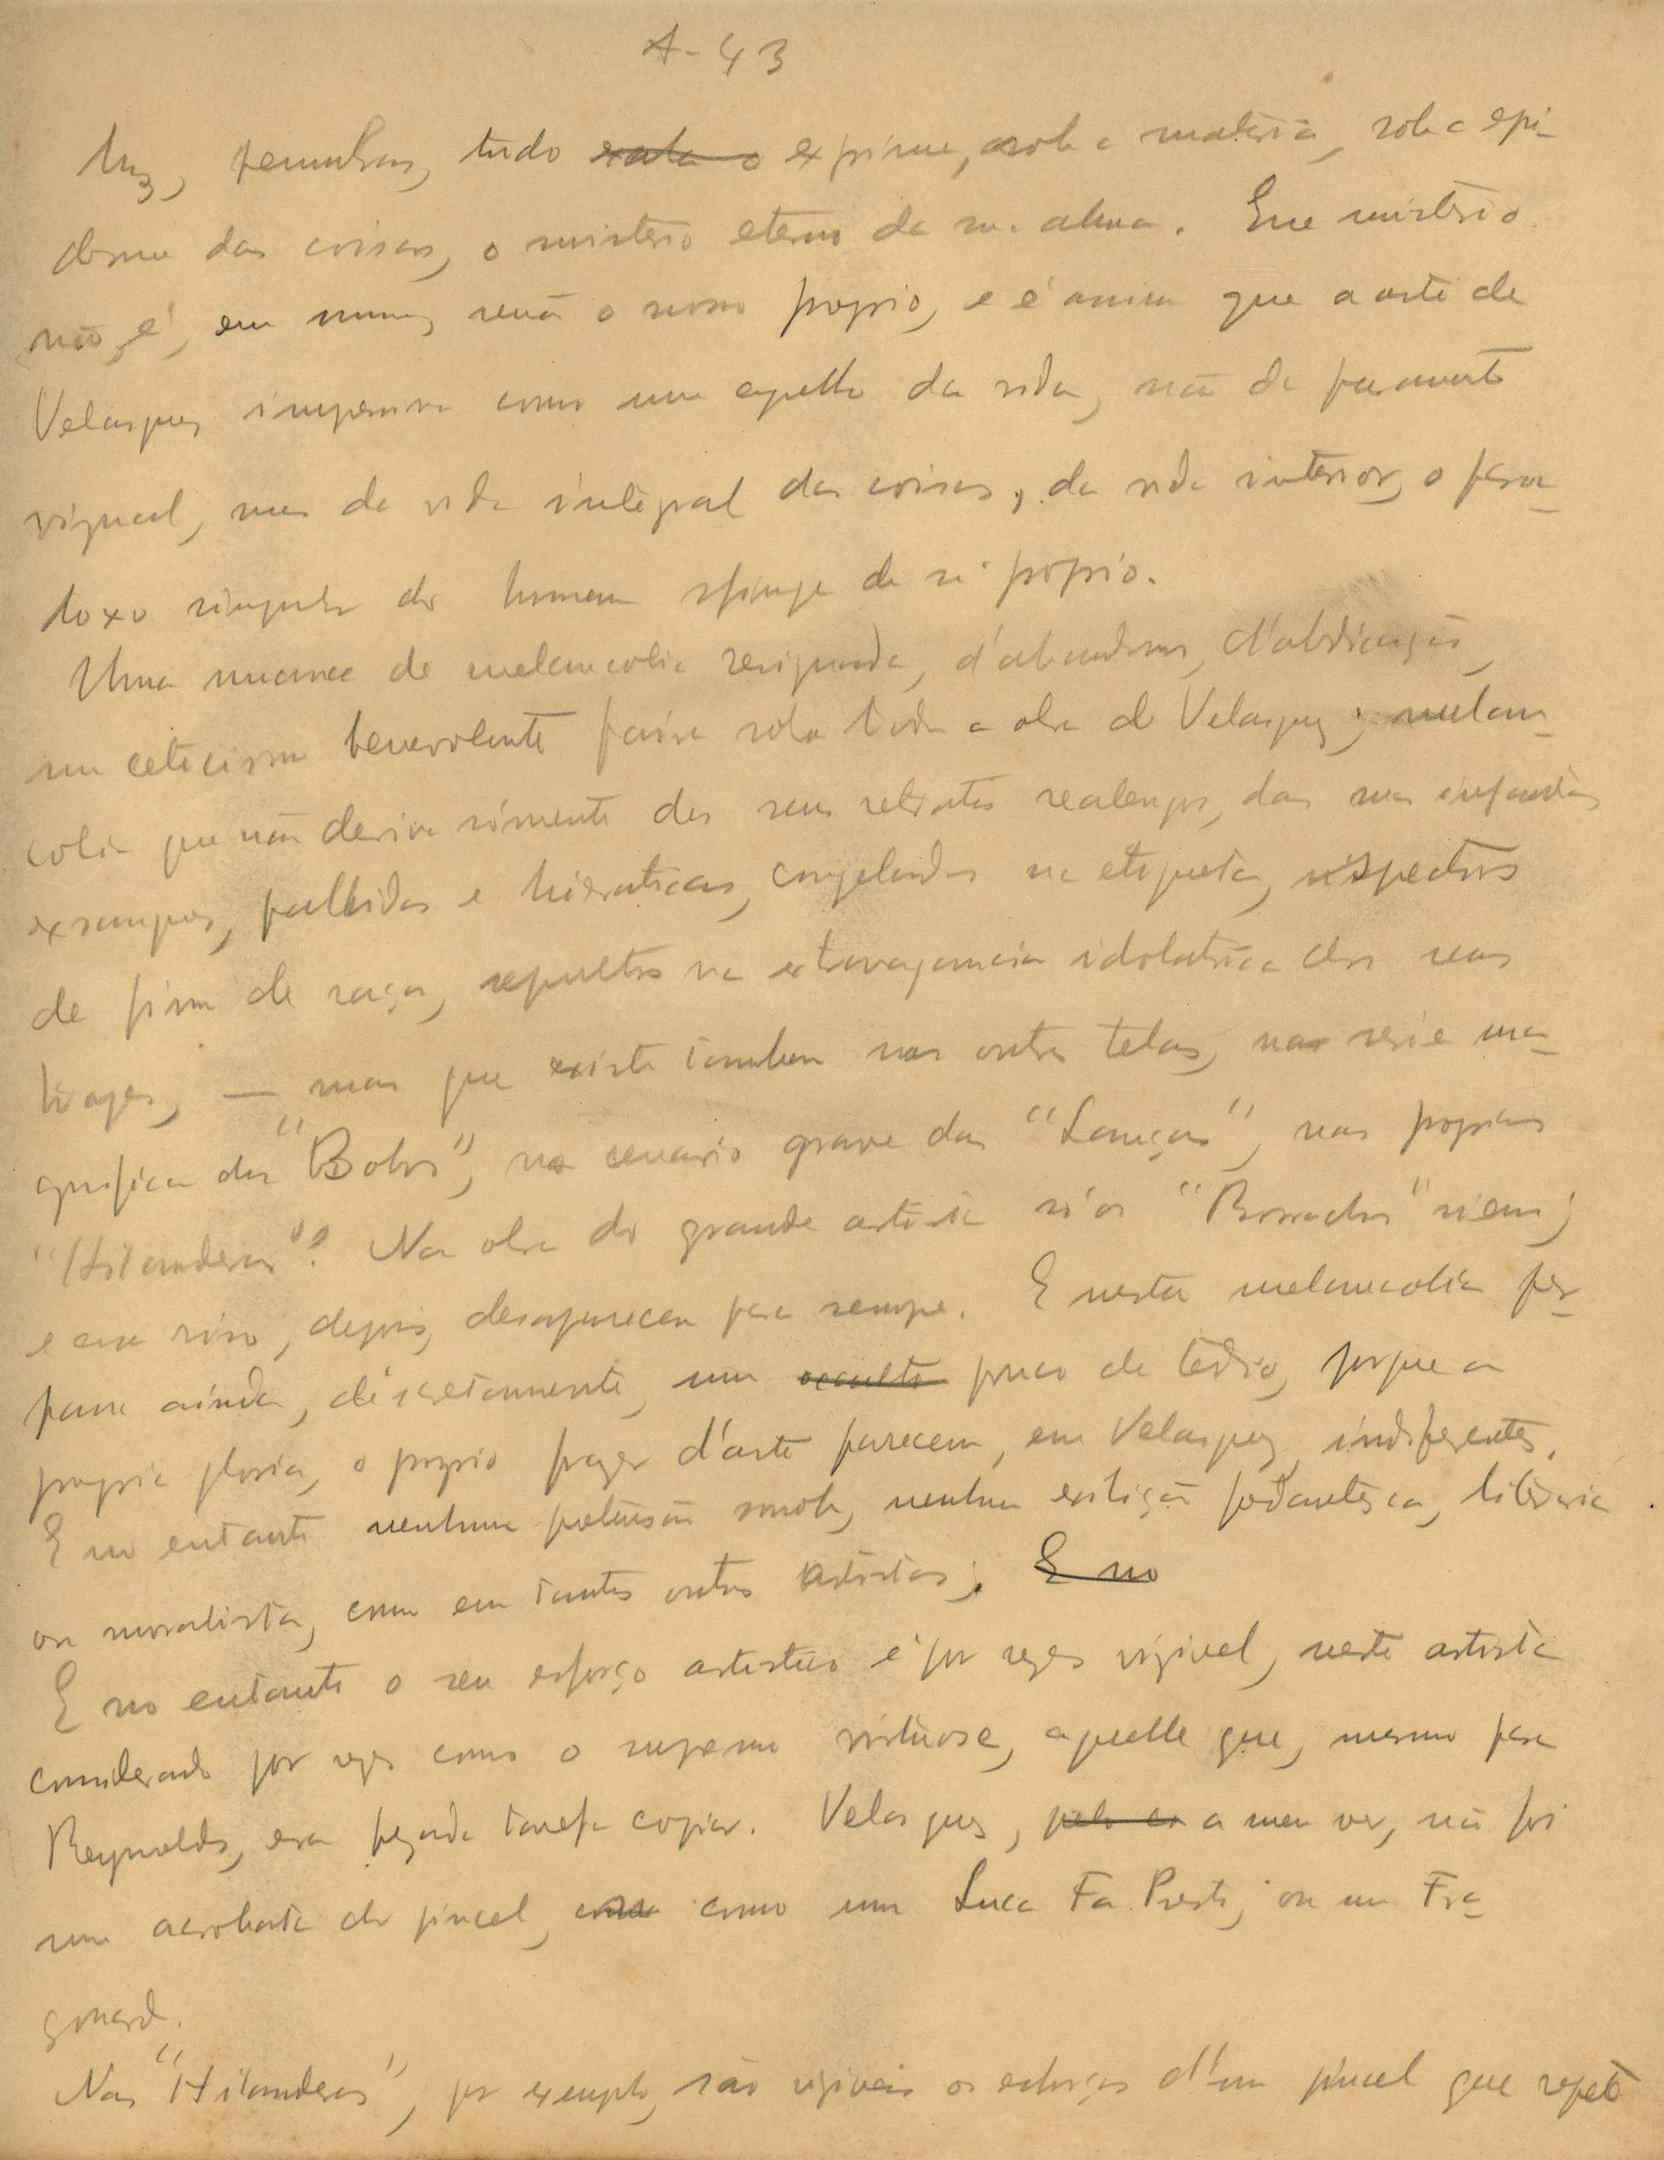 A-43
luz, penumbras, tudo exala o exprime, sob a materia, sob a epi-
derme das coisas, o misterio eterno da sua alma. Esse misterio
não é, em suma, senão o nosso proprio, e é assim que a arte de
Velasquez impressiona como um espelho da vida, não da puramente
visual, mas da vida integral das coisas, da vida interior, o para-
doxo singular do homem esfinge de si proprio.
Uma nuance de melancolia resignada, d'abandono, d'abdicação,
um ceticismo benevolente paira sobre toda a obra de Velasquez; melan-
colia que não deriva sómente dos seus retratos realengos, das suas infantas
exsangues, pallidas e hieraticas, congeladas na etiqueta, espectros
de fim de raça, sepultos na extravagancia idolatrica dos seus
trages, — mas que existe tambem nas outras telas, na serie ma-
gnifica dos "Bobos", no cenario grave das "Lanças", nas proprias
"Hilanderas". Na obra do grande artista só os "Borrachos" riem;
e esse riso, depois, desaparece para sempre. E nesta melancolia per-
passa ainda, discretamente, um occulto pouco de tedio, porque a
propria gloria, o proprio prazer d'arte parecem, em Velasquez, indiferentes.
E no entanto nenhuma pretensão snob, nenhuma pedantesca, literaria
ou moralista, como em tantos outros artistas; E no
E no entanto o seu esforço artistico é por vezes visivel, neste artista
considerado por vezes como o supremo virtuose, aquelle que, mesmo para
Reynolds, era pezada tarefa copiar. Velasquez, a meu ver, não foi
um acrobata do pincel, como um Luca Fa Presto, ou um Fra-
gonard.
Nas "Hilanderas", por exemplo, são visiveis os esforços d'um pincel que repete